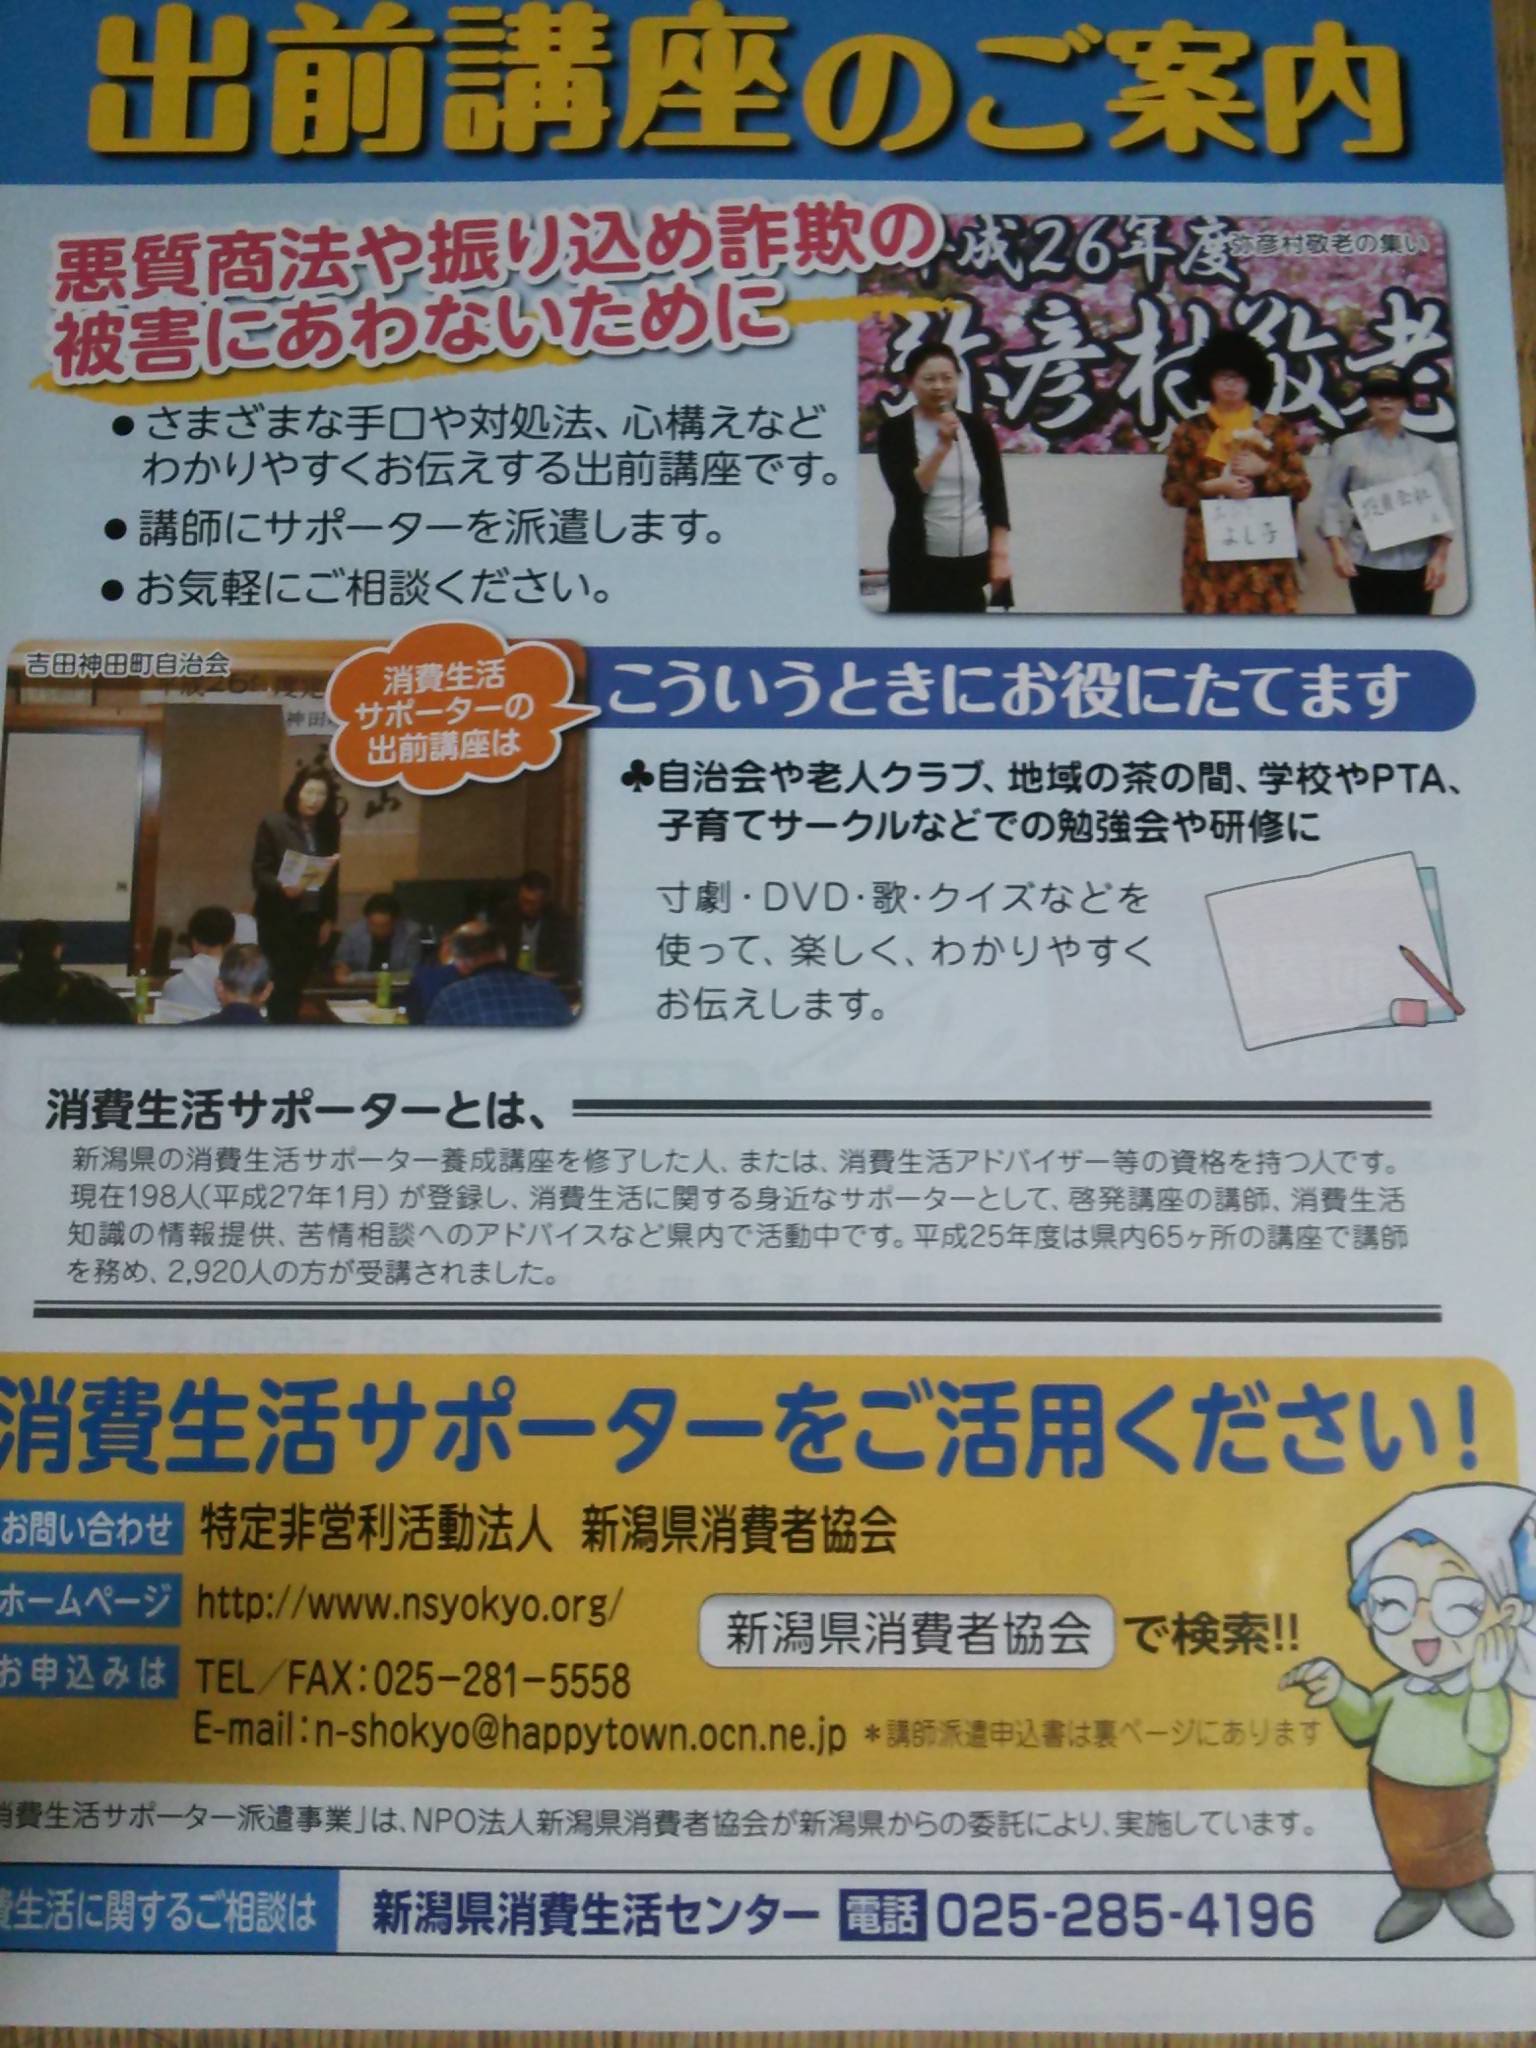 出前講座のご案内
悪質商法や振り込め詐欺の
被害にあわないために
●さまざまな手口や対処法、心構えなど
わかりやすくお伝えする出前講座です。
●講師にサポーターを派遣します。
●お気軽にご相談ください。
平成26年度
弥彦村敬老の集い
弥彦村敬老
よし子
投資会社
吉田神田町自治会
消費生活
サポーターの
出前講座は
こういうときにお役にたてます
♣自治会や老人クラブ、地域の茶の間、学校やPTA、
子育てサークルなどでの勉強会や研修に
寸劇・DVD・歌・クイズなどを
使って、楽しく、わかりやすく
お伝えします。
消費生活サポーターとは、
新潟県の消費生活サポーター養成講座を修了した人、または、消費生活アドバイザー等の資格を持つ人です。
現在198人(平成27年1月)が登録し、消費生活に関する身近なサポーターとして、啓発講座の講師、消費生活
知識の情報提供、苦情相談へのアドバイスなど県内で活動中です。平成25年度は県内65ヶ所の講座で講師
を務め、2,920人の方が受講されました。
消費生活サポーターをご活用ください!
お問い合わせ 特定非営利活動法人 新潟県消費者協会
ホームページ http://www.nsyokyo.org/
新潟県消費者協会 で検索!!
お申込みは TEL/FAX:025-281-5558
E-mail:n-shokyo@happytown.ocn.ne.jp *講師派遣申込書は裏ページにあります
消費生活サポーター派遣事業」は、NPO法人新潟県消費者協会が新潟県からの委託により、実施しています。
費生活に関するご相談は 新潟県消費生活センター 電話 025-285-4196